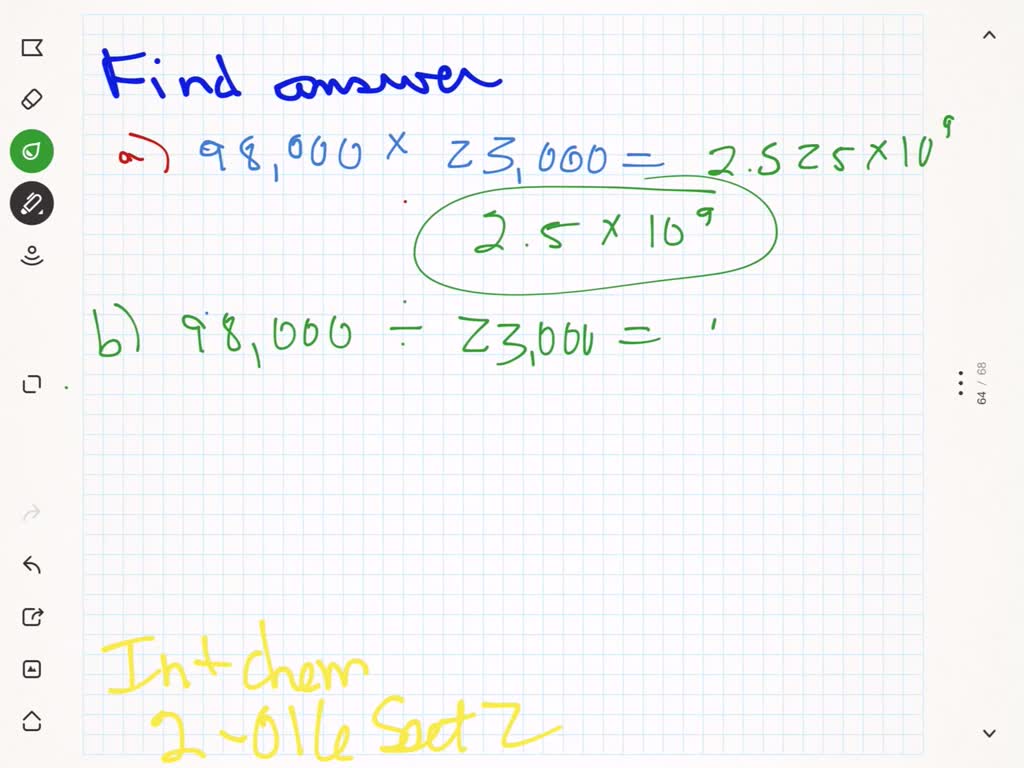 Find answer
a) 98,000 × 23,000 = 2.525×10⁹
2.5 × 10⁹
b) 98,000 ÷ 23,000 =
64 / 68
Int chem
2-016 Sect 2